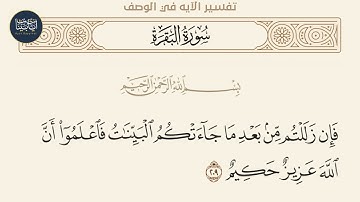 تفسير الآيه في الوصف
سُورَةُ الْبَقَرَةِ
بِسْمِ اللَّهِ الرَّحْمَٰنِ الرَّحِيمِ
فَإِن زَلَلْتُم مِّنۢ بَعْدِ مَا جَآءَتْكُمُ الْبَيِّنَٰتُ فَاعْلَمُوٓا۟ أَنَّ
اللَّهَ عَزِيزٌ حَكِيمٌ ٢٠٩